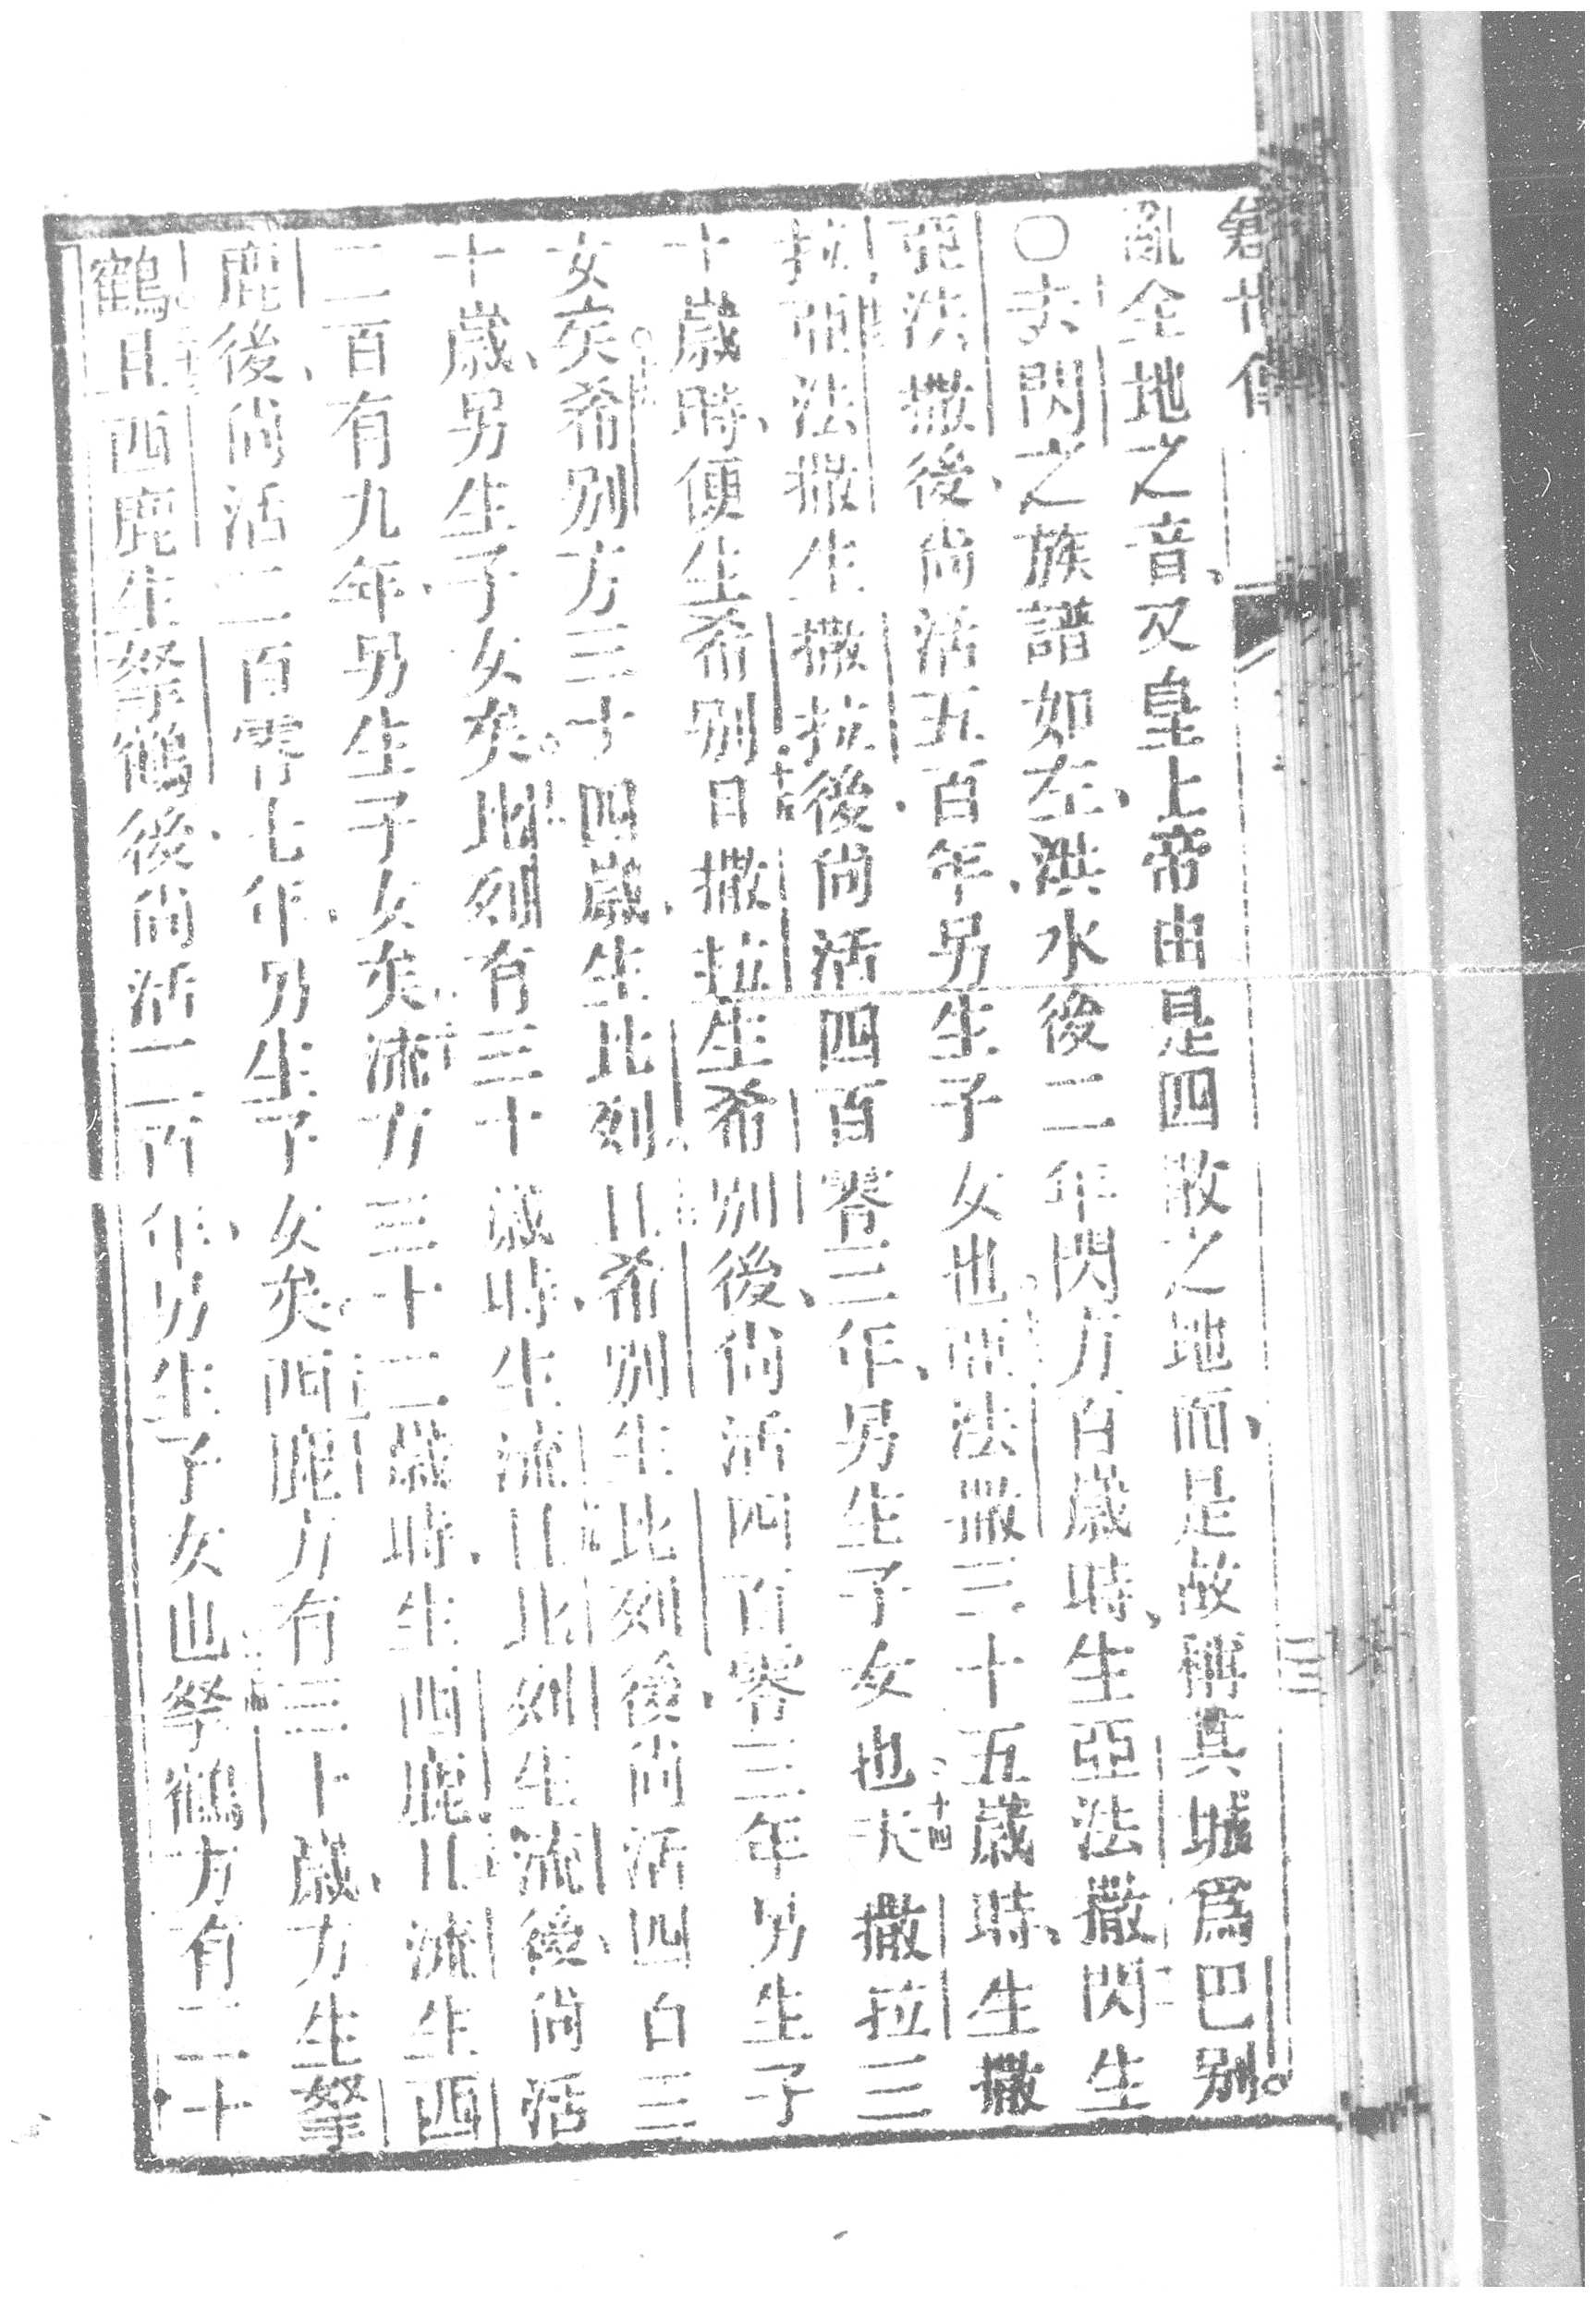 亂全地之音、及皇上帝由是四散之地、而是故稱其城爲巴別。
○夫閃之族譜如左、洪水後二年、閃方百歲時、生亞法撒、閃生
亞法撒後、尚活五百年、另生子女也。亞法撒三十五歲時、生撒
拉、亞法撒生撒拉後、尚活四百零三年、另生子女也。十四夫撒拉三
十歲時、便生希別、日撒拉生希別後、尚活四百零三年、另生子
女矣。希別方三十四歲、生比列、日希別生比列後、尚活四百三
十歲、另生子女矣。比列有三十歲時、生流、日比列生流後、尚活
二百有九年、另生子女矣。流方三十二歲時、生西鹿、日流生西
鹿後、尚活二百零七年、另生子女矣。西鹿方有三十歲、方生拏
鶴、日西鹿生拏鶴後、尚活二百年、另生子女也。拏鶴方有二十